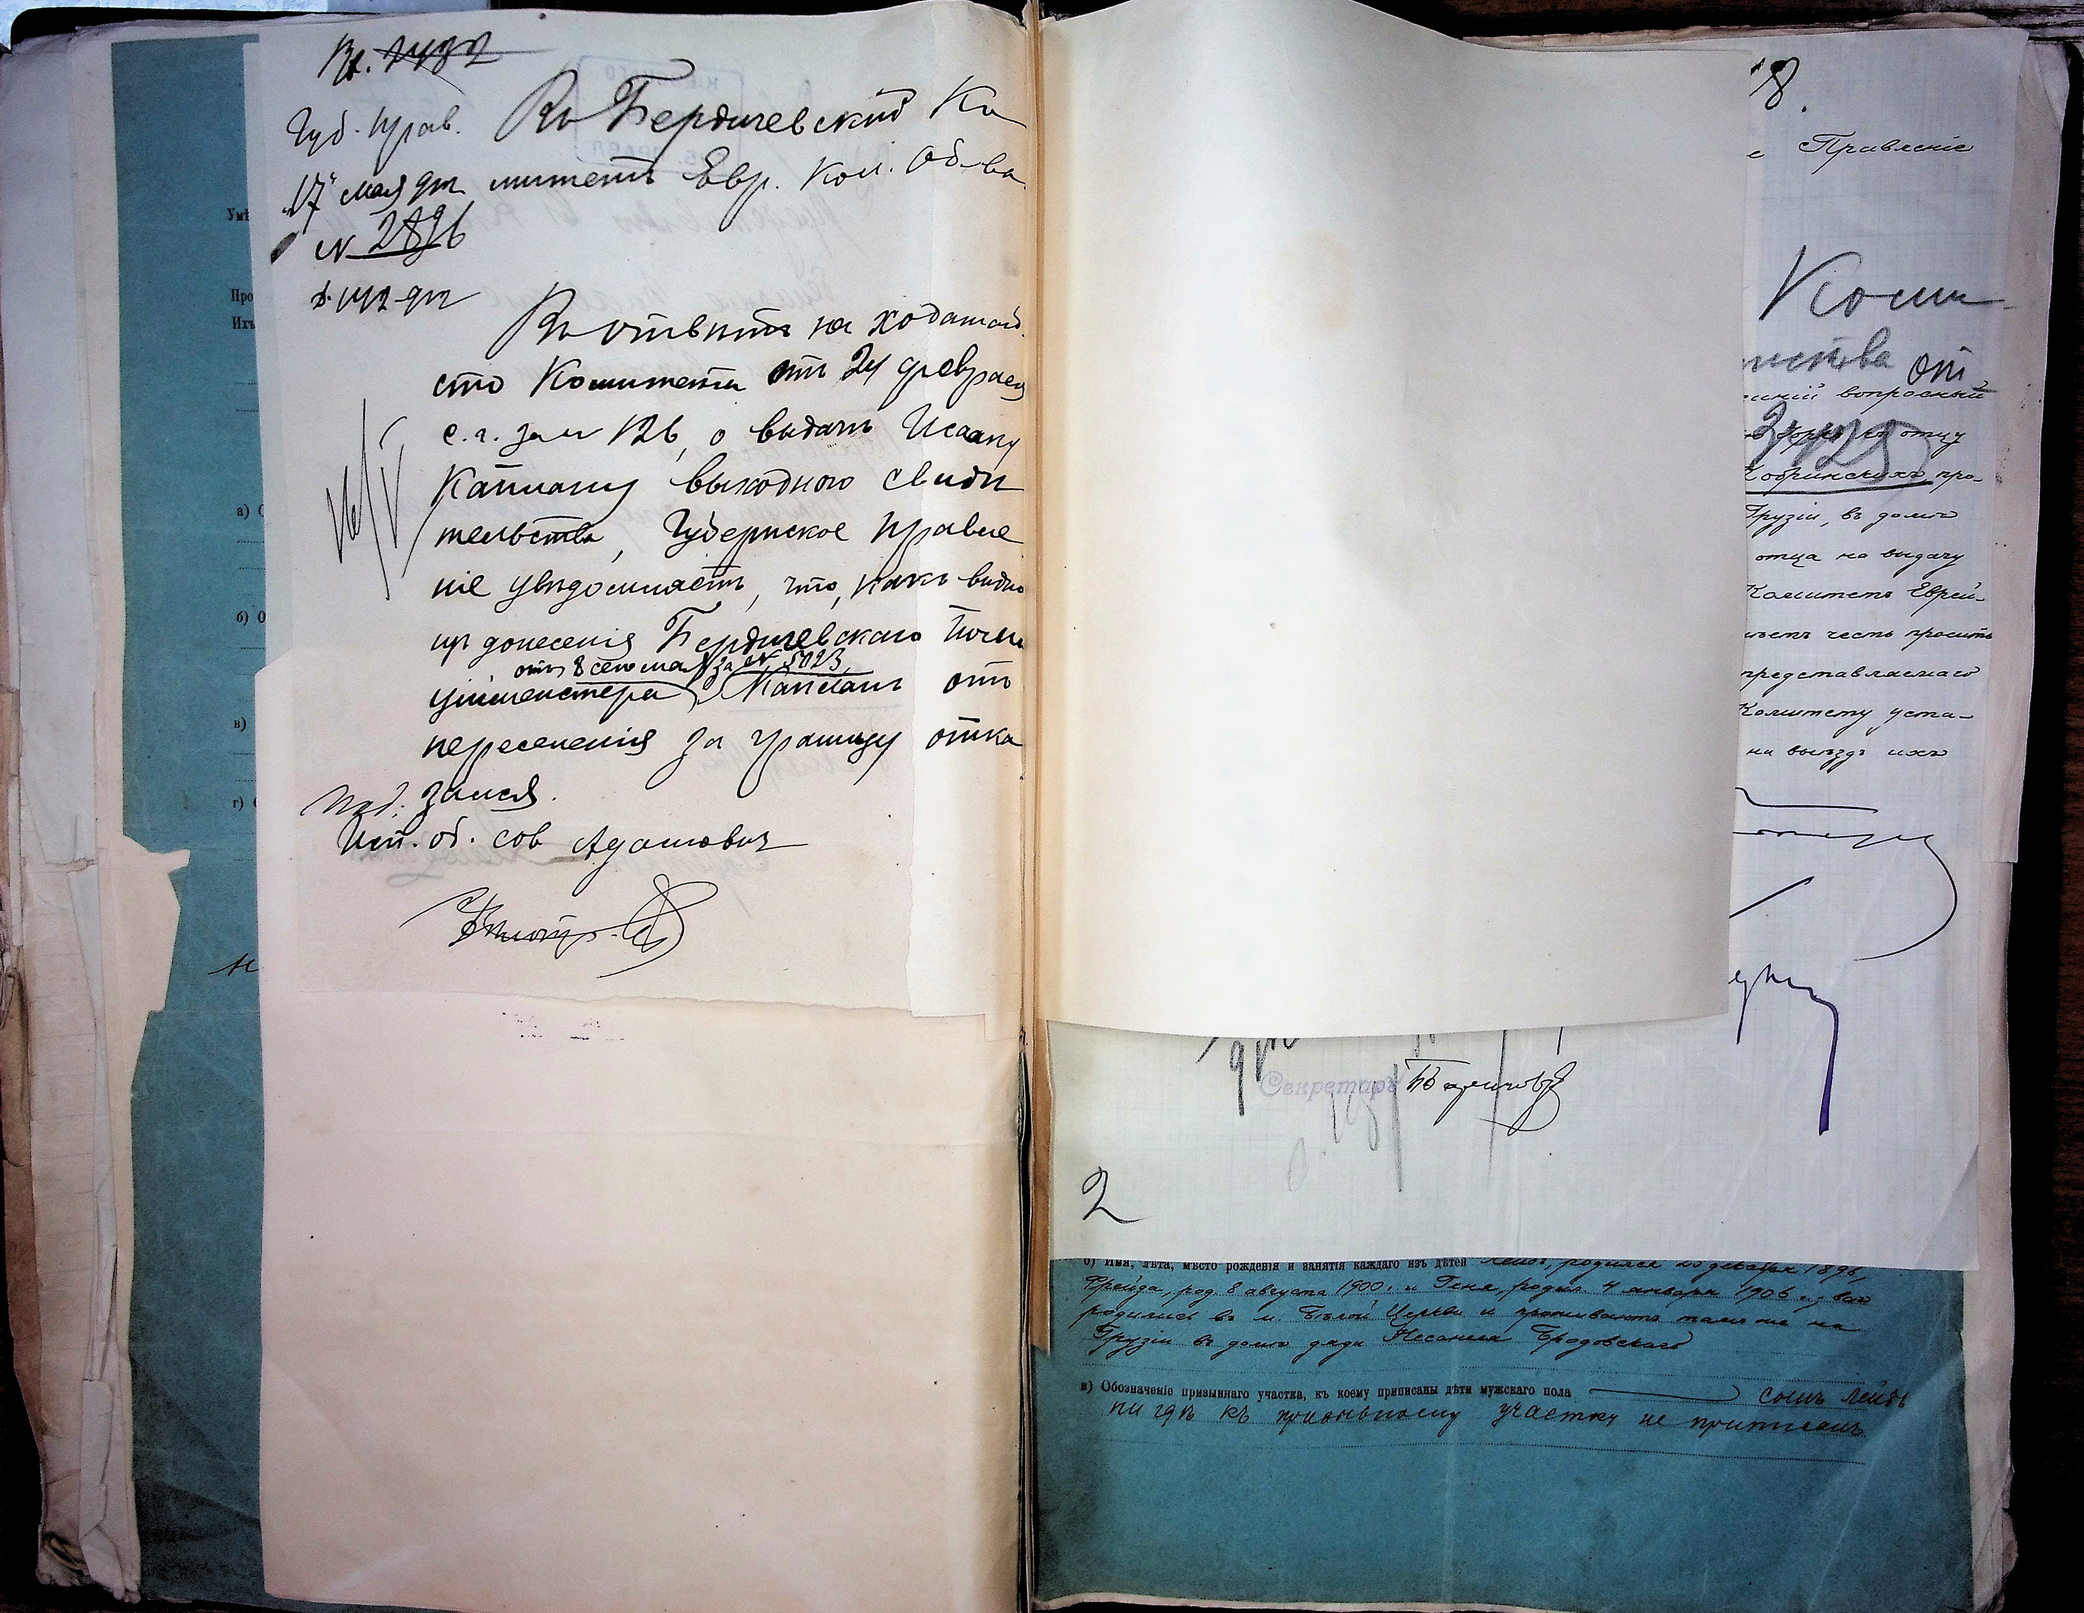 Вх. 2482
Губ. Прав.
17 мая 912
№ 2896
д. 142-912
Въ Бердичевскій Ко
митетъ Евр. Кол. Об-ва
Въ отвѣтъ на ходатай
ство Комитета отъ 24 февраля
с.г. за № 126, о выдачѣ Исааку
Каплану выходного свидѣ
тельства, Губернское Правле
ніе увѣдомляетъ, что, какъ видно
изъ донесенія Бердичевскаго Поли
отъ 8 сего мая за № 5023,
ціймейстера Капланъ отъ
переселенія за границу отка
зался.
Под:
Исп. об. сов Адамович
18.
е Правленіе
Коми
тства от
вопросный
отцу
Кобринскихъ, про-
Грузіи, въ домѣ
отца на выдачу
Комитетъ Еврей-
ѣетъ честь просить
представляемаго
Комитету уста-
на выѣздъ ихъ
Секретарь
2
Умѣ
Про
Ихъ
а) С
б) О
в)
г) С
б) Имя, лѣта, мѣсто рожденія и занятія каждаго изъ дѣтей Лейбъ, родился 25 декабря 1898,
Фрейда, род. 8 августа 1900 г. и Геня, родил. 4 января 1906 г., все
родились въ м. Бѣлой Церкви и проживаютъ тамъ же на
Грузіи въ домѣ дяди Несанеля Бродовскаго
в) Обозначеніе призывнаго участка, къ коему приписаны дѣти мужскаго пола сынъ Лейбъ
нигдѣ къ призывному участку не приписанъ